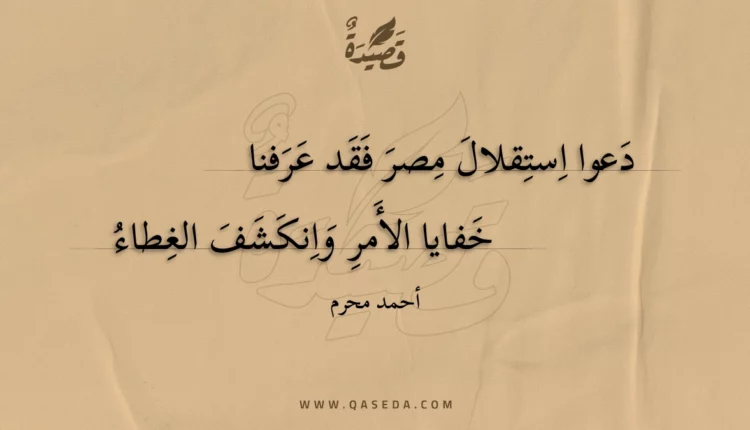 قَصِيدَةٌ
دَعوا اِستِقلالَ مِصرَ فَقَد عَرَفنا
خَفايا الأَمرِ وَاِنكَشَفَ الغِطاءُ
أحمد محرم
WWW.QASEDA.COM